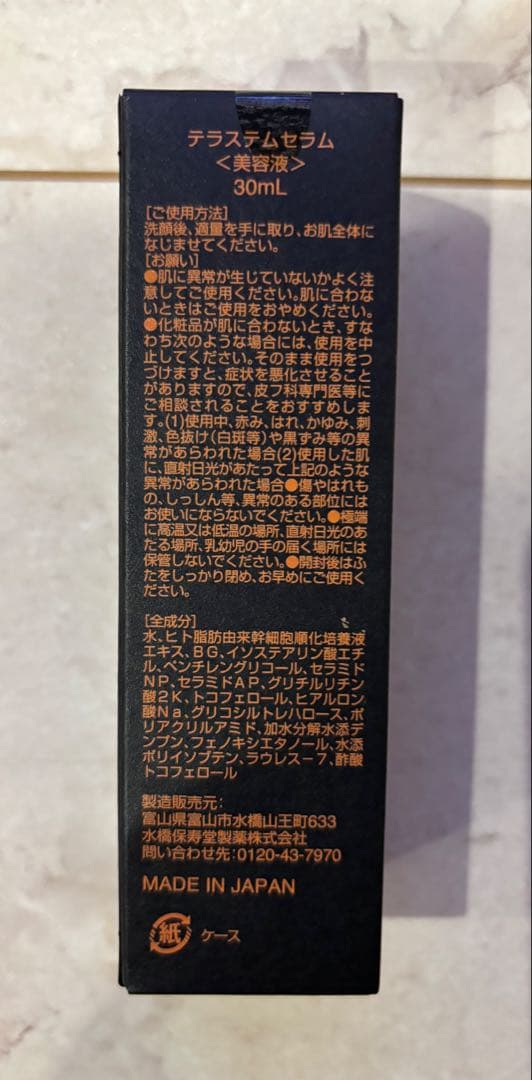 テラステムセラム
＜美容液＞
30mL
[ご使用方法]
洗顔後、適量を手に取り、お肌全体に
なじませてください。
[お願い]
●肌に異常が生じていないかよく注
意してご使用ください。肌に合わな
いときはご使用をおやめください。
●化粧品が肌に合わないとき、すな
わち次のような場合には、使用を中
止してください。そのまま使用をつ
づけますと、症状を悪化させること
がありますので、皮フ科専門医等に
ご相談されることをおすすめしま
す。(1)使用中、赤み、はれ、かゆみ、刺
激、色抜け(白斑等)や黒ずみ等の異
常があらわれた場合(2)使用した肌
に、直射日光があたって上記のような
異常があらわれた場合●傷やはれも
の、しっしん等、異常のある部位には
お使いにならないでください。●極端
に高温又は低温の場所、直射日光のあ
たる場所、乳幼児の手の届く場所には
保管しないでください。●開封後はふ
たをしっかり閉め、お早めにご使用く
ださい。
[全成分]
水、ヒト脂肪由来幹細胞順化培養液
エキス、BG、イソステアリン酸エチ
ル、ペンチレングリコール、セラミド
NP、セラミドAP、グリチルリチン
酸2K、トコフェロール、ヒアルロン
酸Na、グリコシルトレハロース、ポ
リアクリルアミド、加水分解水添デ
ンプン、フェノキシエタノール、水添
ポリイソブテン、ラウレス－7、酢酸
トコフェロール
製造販売元：
富山県富山市水橋山王町633
水橋保寿堂製薬株式会社
問い合わせ先：0120-43-7970
MADE IN JAPAN
紙 ケース